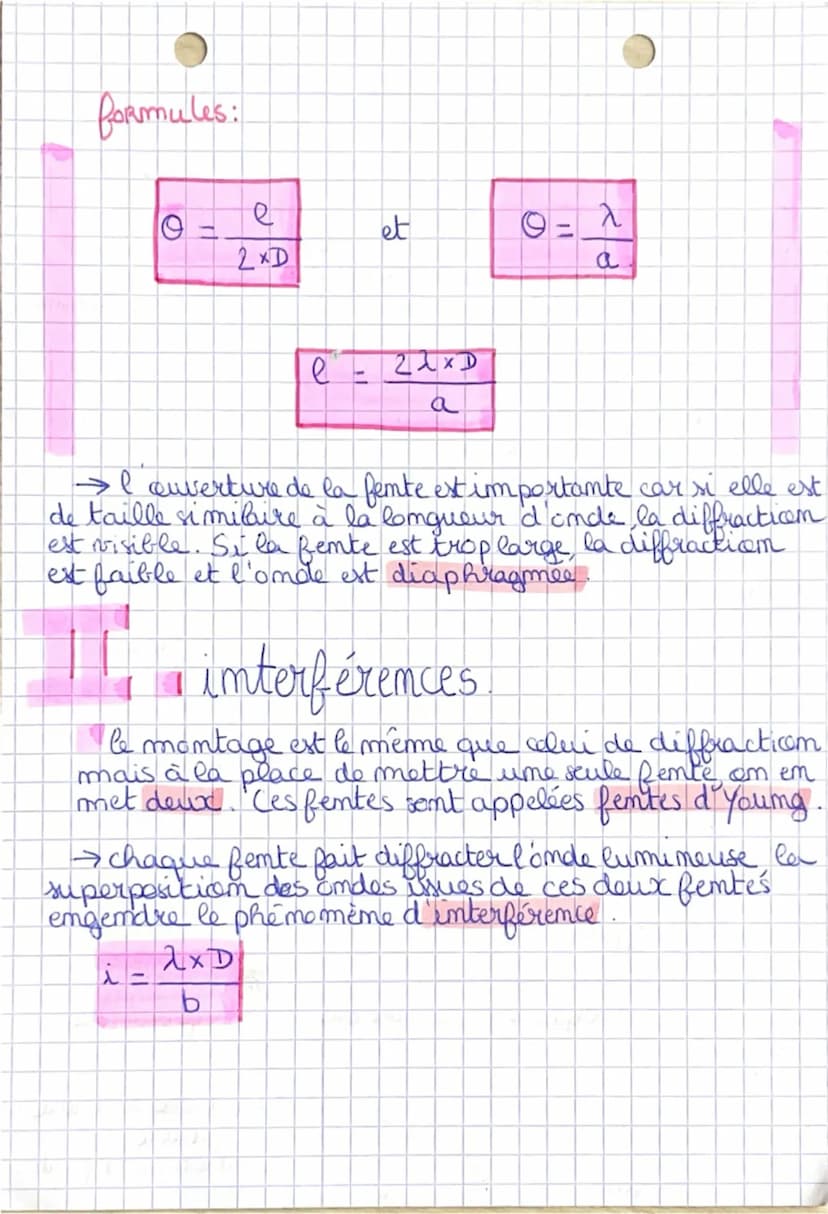 formules:
θ = e / 2×D et θ = λ / a
l = 2λ×D / a
→ l'ouverture de la fente est importante car si elle est
de taille similaire à la longueur d'onde, la diffraction
est visible. Si la fente est trop large, la diffraction
est faible et l'onde est diaphragmée.
II. interférences.
le montage est le même que celui de diffraction
mais à la place de mettre une seule fente, on en
met deux. Ces fentes sont appelées fentes d'Young.
→ chaque fente fait diffracter l'onde lumineuse, la
superposition des ondes issues de ces deux fentes
engendre le phénomème d'interférence.
i = λ×D / b